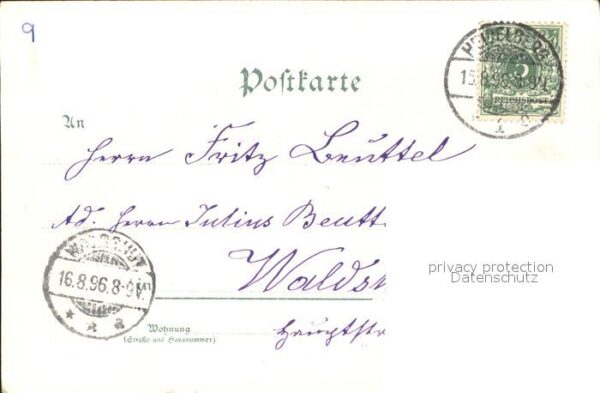 9
HEIDELBERG
15.8.96.
1 c
5
REICHSPOST
Postkarte
An
Herrn Fritz Beuttel
Ad. Herrn Julius Beutt
WALDSHUT
16.8.96.8-9V.
Walds
privacy protection
Datenschutz
Wohnung
(Straße und Hausnummer)
Hauptstr